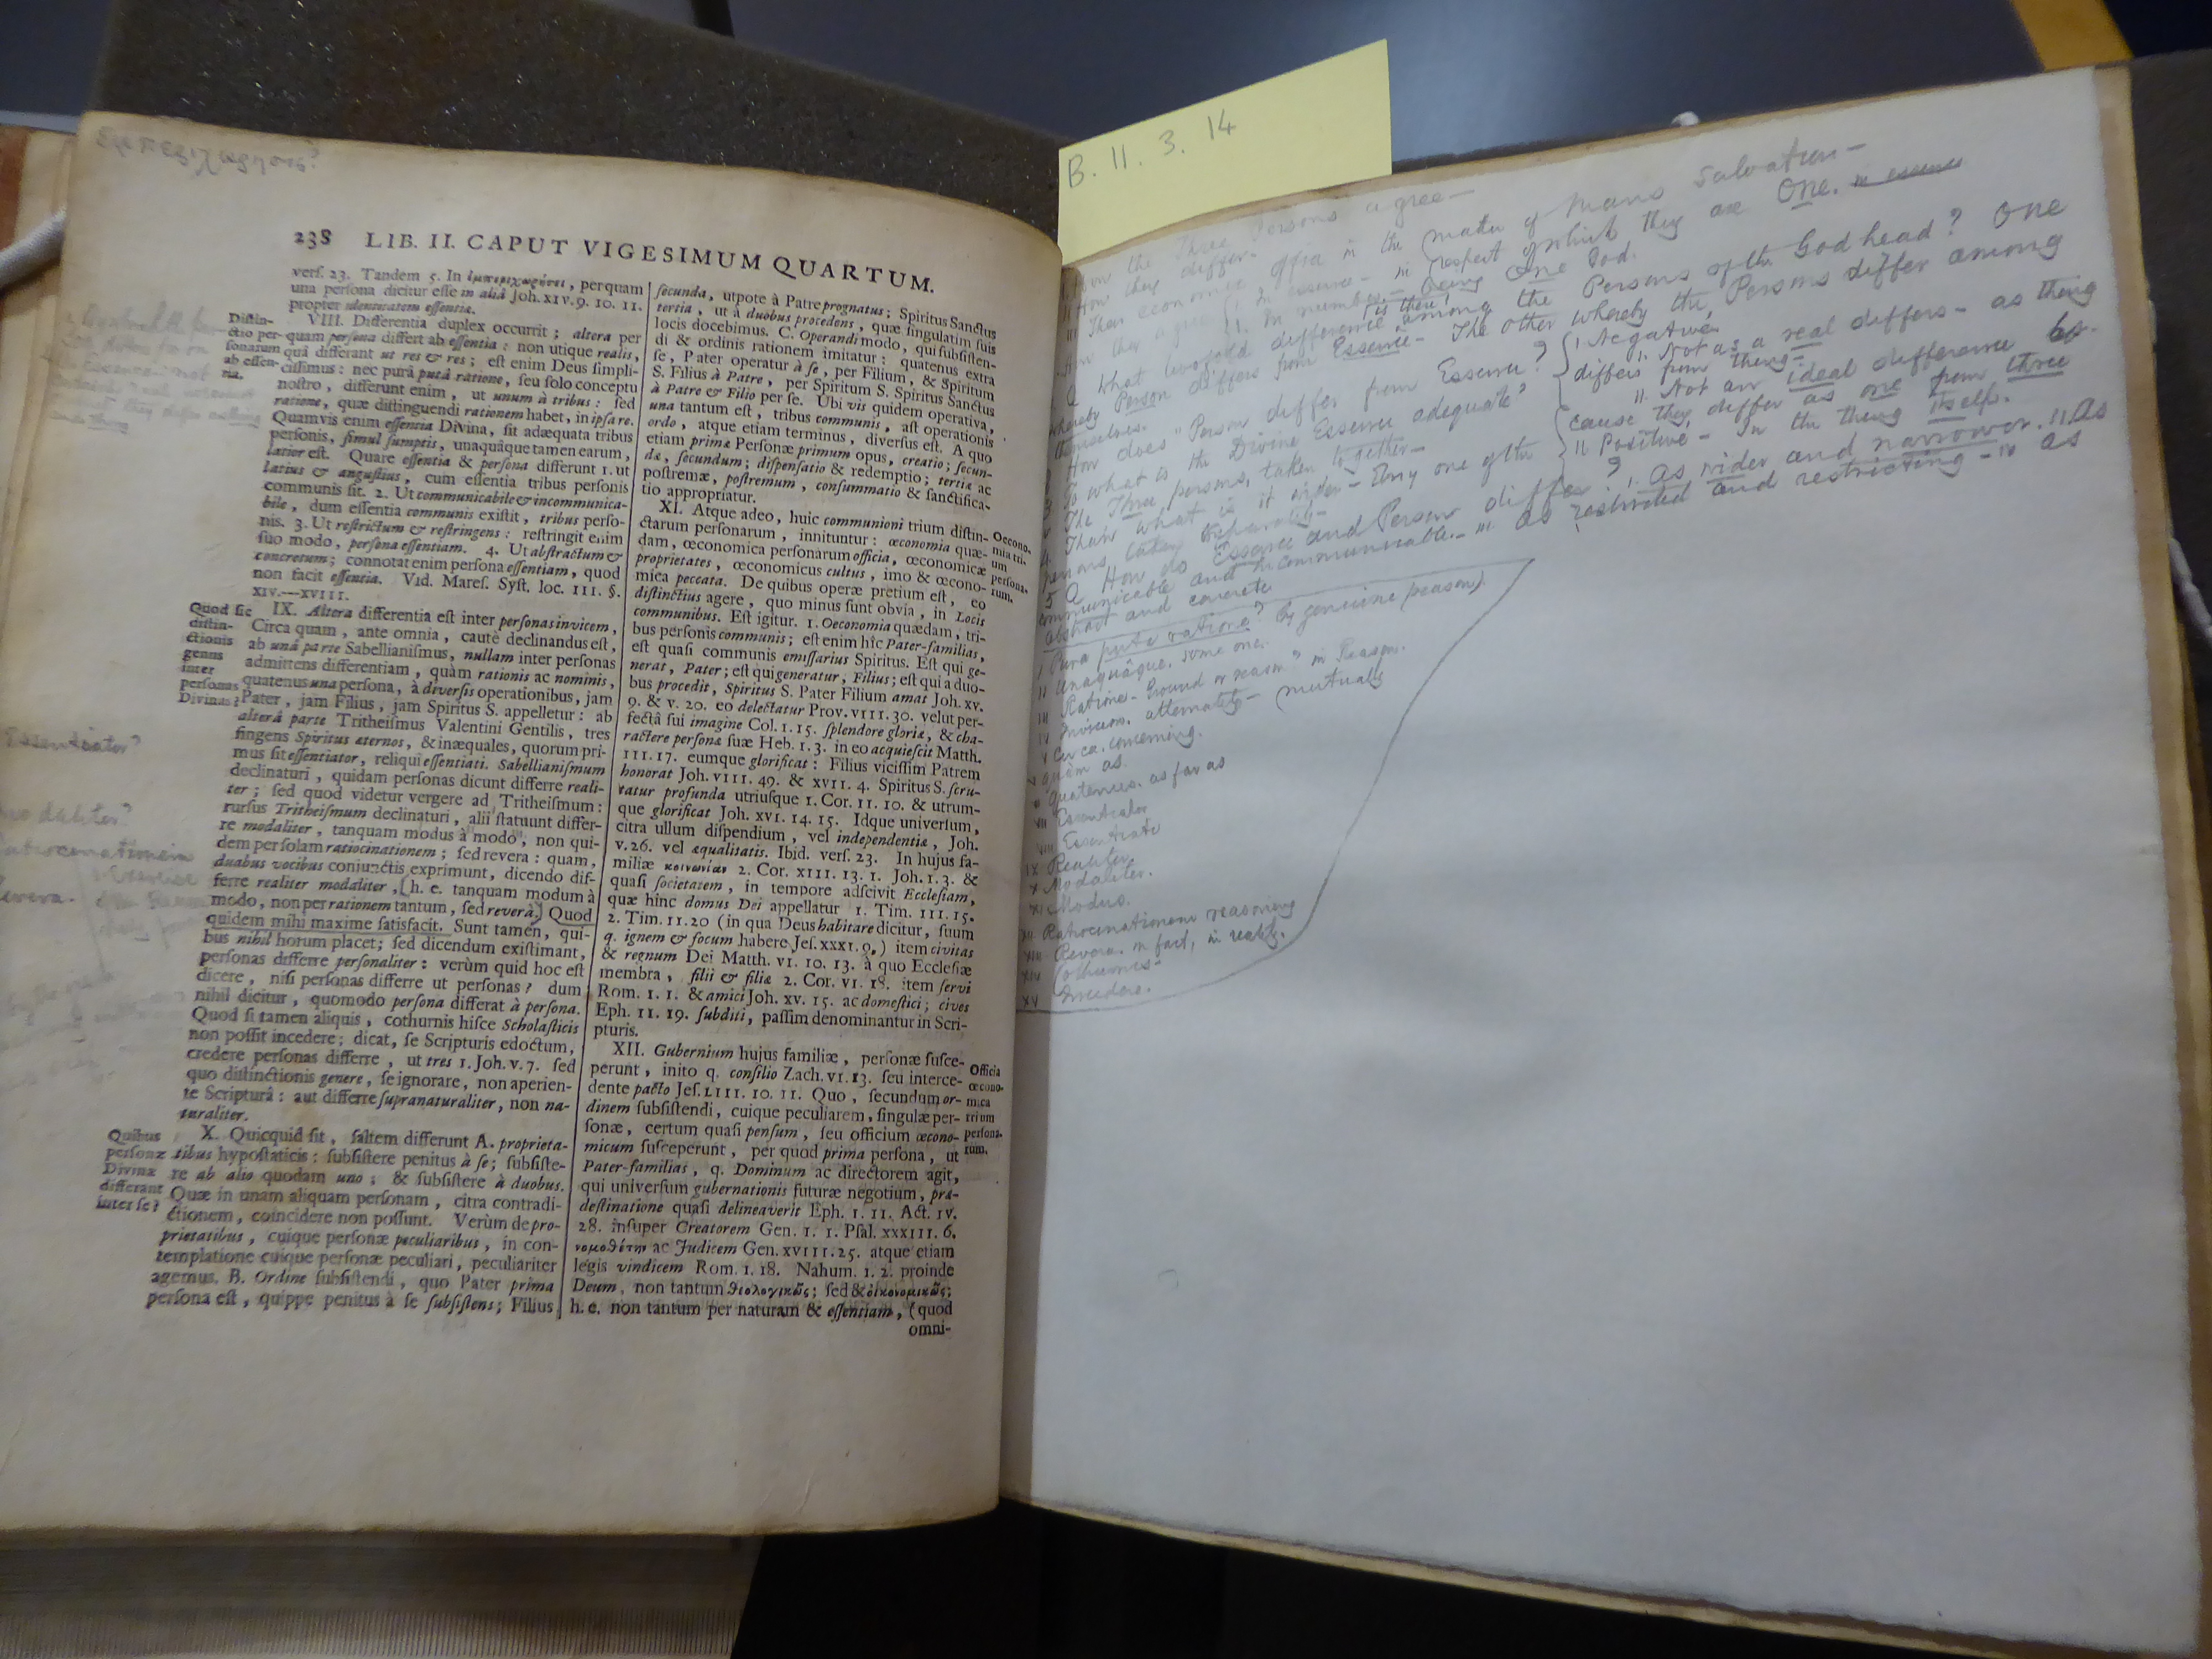 Εμπεριχωρησις?
238 LIB. II. CAPUT VIGESIMUM QUARTUM.
verſ. 23. Tandem 5. In ἐμπεριχωρήσει, perquam
una perſona dicitur eſſe in aliâ Joh. XIV. 9. 10. 11.
propter identitatem eſſentiæ.
Diſtin-
ctio per-
ſonarum
ab eſſen-
tia.
VIII. Differentia duplex occurrit; altera per
quam perſona differt ab eſſentia: non utique realis,
quâ differant ut res & res; eſt enim Deus ſimpli-
ciſſimus: nec purâ putâ ratione, ſeu ſolo conceptu
noſtro, differunt enim, ut unum à tribus: ſed
ratione, quæ diſtinguendi rationem habet, in ipſa re.
Quamvis enim eſſentia Divina, ſit adæquata tribus
perſonis, ſimul ſumptis, unaquâque tamen earum,
latior eſt. Quare eſſentia & perſona differunt 1. ut
latius & anguſtius, cum eſſentia tribus perſonis
communis ſit. 2. Ut communicabile & incommunica-
bile, dum eſſentia communis exiſtit, tribus perſo-
nis. 3. Ut reſtrictum & reſtringens: reſtringit enim
ſuo modo, perſona eſſentiam. 4. Ut abſtractum &
concretum; connotat enim perſona eſſentiam, quod
non facit eſſentia. Vid. Mareſ. Syſt. loc. III. §.
XIV.—XVIII.
Quod ſit
diſtin-
ctionis
genus
inter
perſonas
Divinas?
IX. Altera differentia eſt inter perſonas invicem,
Circa quam, ante omnia, cautè declinandus eſt,
ab unâ parte Sabellianiſmus, nullam inter perſonas
admittens differentiam, quàm rationis ac nominis,
quatenus una perſona, à diverſis operationibus, jam
Pater, jam Filius, jam Spiritus S. appelletur: ab
alterâ parte Tritheiſmus Valentini Gentilis, tres
fingens Spiritus æternos, & inæquales, quorum pri-
mus ſit eſſentiator, reliqui eſſentiati. Sabellianiſmum
declinaturi, quidam perſonas dicunt differre reali-
ter; ſed quod videtur vergere ad Tritheiſmum:
rurſus Tritheiſmum declinaturi, alii ſtatuunt differ-
re modaliter, tanquam modus à modo, non qui-
dem per ſolam ratiocinationem; ſed revera: quam,
duabus vocibus conjunctis exprimunt, dicendo dif-
ferre realiter modaliter, (h. e. tanquam modum à
modo, non per rationem tantum, ſed reverà) Quod
quidem mihi maxime ſatisfacit. Sunt tamen, qui-
bus nihil horum placet; ſed dicendum exiſtimant,
perſonas differre perſonaliter: verùm quid hoc eſt
dicere, niſi perſonas differre ut perſonas? dum
nihil dicitur, quomodo perſona differat à perſona.
Quod ſi tamen aliquis, cothurnis hiſce Scholaſticis
non poſſit incedere; dicat, ſe Scripturis edoctum,
credere perſonas differre, ut tres 1. Joh. V. 7. ſed
quo diſtinctionis genere, ſe ignorare, non aperien-
te Scripturâ: aut differre ſupranaturaliter, non na-
turaliter.
Quibus
perſonæ
Divinæ
differant
inter ſe?
X. Quicquid ſit, ſaltem differunt A. proprieta-
tibus hypoſtaticis: ſubſiſtere penitus à ſe; ſubſiſte-
re ab alio quodam uno; & ſubſiſtere à duobus.
Quæ in unam aliquam perſonam, citra contradi-
ctionem, coincidere non poſſunt. Verùm de pro-
prietatibus, cuique perſonæ peculiaribus, in con-
templatione cuique perſonæ peculiari, peculiariter
agemus. B. Ordine ſubſiſtendi, quo Pater prima
perſona eſt, quippe penitus à ſe ſubſiſtens; Filius
ſecunda, utpote à Patre prognatus; Spiritus Sanctus
tertia, ut à duobus procedens, quæ ſingulatim ſuis
locis docebimus. C. Operandi modo, qui ſubſiſten-
di & ordinis rationem imitatur: quatenus extra
ſe, Pater operatur à ſe, per Filium, & Spiritum
S. Filius à Patre, per Spiritum S. Spiritus Sanctus
à Patre & Filio per ſe. Ubi vis quidem operativa,
una tantum eſt, tribus communis, aſt operationis
ordo, atque etiam terminus, diverſus eſt. A quo
etiam primæ Perſonæ primum opus, creatio; ſecun-
dæ, ſecundum; diſpenſatio & redemptio; tertiæ ac
poſtremæ, poſtremum, conſummatio & ſanctifica-
tio appropriatur.
XI. Atque adeo, huic communioni trium diſtin-
ctarum perſonarum, innituntur: œconomia quæ-
dam, œconomica perſonarum officia, œconomicæ
proprietates, œconomicus cultus, imo & œcono-
mica peccata. De quibus operæ pretium eſt, eo
diſtinctius agere, quo minus ſunt obvia, in Locis
communibus. Eſt igitur. 1. Oeconomia quædam, tri-
bus perſonis communis; eſt enim hîc Pater-familias,
eſt quaſi communis emiſſarius Spiritus. Eſt qui ge-
nerat, Pater; eſt qui generatur, Filius; eſt qui a duo-
bus procedit, Spiritus S. Pater Filium amat Joh. XV.
9. & V. 20. eo delectatur Prov. VIII. 30. velut per-
fectâ ſui imagine Col. I. 15. ſplendore gloriæ, & cha-
ractere perſonæ ſuæ Heb. I. 3. in eo acquieſcit Matth.
III. 17. eumque glorificat: Filius viciſſim Patrem
honorat Joh. VIII. 49. & XVII. 4. Spiritus S. ſcru-
tatur profunda utriuſque 1. Cor. II. 10. & utrum-
que glorificat Joh. XVI. 14. 15. Idque univerſum,
citra ullum diſpendium, vel independentiæ, Joh.
V. 26. vel æqualitatis. Ibid. verſ. 23. In hujus fa-
miliæ κοινωνίαν 2. Cor. XIII. 13. 1. Joh. I. 3. &
quaſi ſocietatem, in tempore adſcivit Eccleſiam,
quæ hinc domus Dei appellatur 1. Tim. III. 15.
2. Tim. II. 20 (in qua Deus habitare dicitur, ſuum
q. ignem & focum habere Jeſ. XXXI. 9.) item civitas
& regnum Dei Matth. VI. 10. 13. à quo Eccleſiæ
membra, filii & filiæ 2. Cor. VI. 18. item ſervi
Rom. I. 1. & amici Joh. XV. 15. ac domeſtici; cives
Eph. II. 19. ſubditi, paſſim denominantur in Scri-
pturis.
Oecono-
mia tri-
um
perſona-
rum.
XII. Gubernium hujus familiæ, perſonæ ſuſce-
perunt, inito q. conſilio Zach. VI. 13. ſeu interce-
dente pacto Jeſ. LIII. 10. 11. Quo, ſecundum or-
dinem ſubſiſtendi, cuique peculiarem, ſingulæ per-
ſonæ, certum quaſi penſum, ſeu officium œcono-
micum ſuſceperunt, per quod prima perſona, ut
Pater-familias, q. Dominum ac directorem agit,
qui univerſum gubernationis futuræ negotium, præ-
deſtinatione quaſi delineaverit Eph. I. 11. Act. IV.
28. inſuper Creatorem Gen. I. 1. Pſal. XXXIII. 6.
νομοθέτην ac Judicem Gen. XVIII. 25. atque etiam
legis vindicem Rom. I. 18. Nahum. I. 2. proinde
Deum, non tantum θεολογικῶς; ſed & οἰκονομικῶς;
h. e. non tantum per naturam & eſſentiam, (quod
omni-
Officia
œcono-
mica
trium
perſona-
rum.
Essentiator?
modaliter?
Ratiocinationem
Revera.
B. 11. 3. 14
How the Three Persons agree—
II How they differ.
III Their economic offices in the matter of Mans Salvation—
How they agree 1. In essence— in respect of which they are One. in essence
II. In number— Being One God.
Q What twofold difference is there among the Persons of the Godhead? One
whereby Person differs from Essence— The other whereby the Persons differ among
themselves.
How does Person differ from Essence? 1. Negative.
1. Not as a real differs— as thing
differs from thing—
II. Not an ideal difference be-
cause they differ as one from three
II Positive— In the thing itself.
3 To what is the Divine Essence adequate?
The Three persons, taken together—
4 Than what is it wider— Any one of the
persons taken separately—
5 Q How do Essence and Person differ? 1. As wider and narrower. II. As
communicable and incommunicable.— III. As restricted and restricting— IV as
abstract and concrete
I Pura puta ratione? By genuine (reason).
II Unaquâque. some one.
III Ratione— Ground or reason? in Reason.
IV Invicem. alternately— mutually
V Circa. concerning.
quàm as.
quatenus. as far as
VII Essentiator
VIII Essentiati
IX Realiter
X Modaliter.
XI Modus.
XII Ratiocinationem reasoning
XIII Revera. in fact, in reality.
XIV Cothurnis—
XV Incedere.